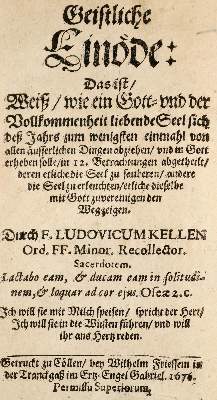 Geistliche
Einöde:
Das ist/
Weiß/ wie ein Gott- vnd der
Vollkommenheit liebende Seel sich
deß Jahrs zum wenigsten einmahl von
allen äusserlichen Dingen abziehen/ vnd in Gott
erheben solle/ in 12. Betrachtungen abgetheilt/
deren etliche die Seel zu säuberen/ andere
die Seel zu erleuchten/ etliche dieselbe
mit Gott zu vereinigen den
Weg zeigen.
Durch F. LUDOVICUM KELLEN
Ord. FF. Minor. Recollector.
Sacerdotem.
Lactabo eam, & ducam eam in solitudi-
nem, & loquar ad cor ejus. Oseæ 2. c.
Ich will sie mit Milch speisen/ spricht der Herr/
Ich will sie in die Wüsten führen/ vnd will
ihr ans Hertz reden.
Getruckt zu Cöllen/ bey Wilhelm Friessem in
der Tranckgaß im Ertz-Engel Gabriel. 1676.
Permissu Superiorum.